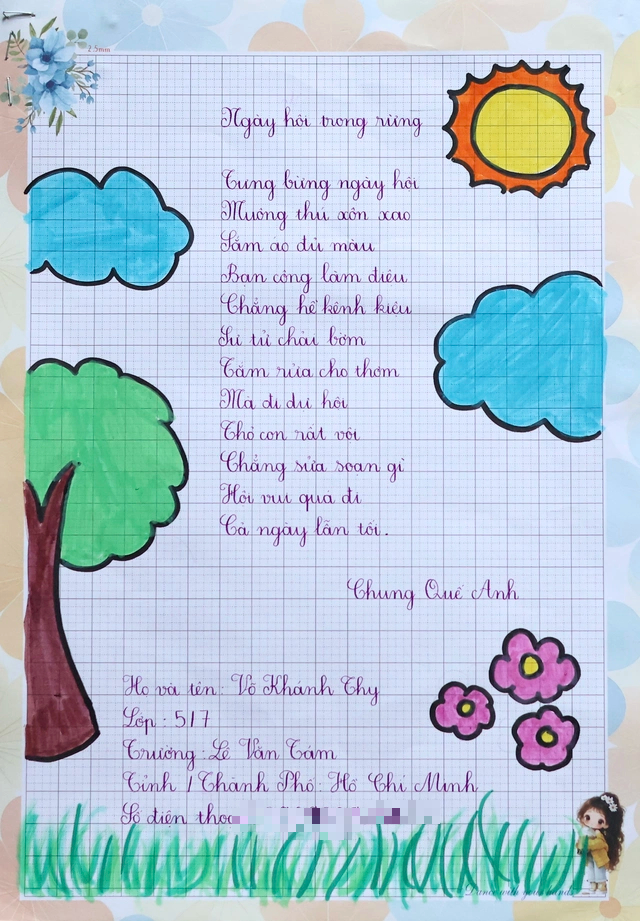 2.5mm
Ngày hội trong rừng
Tưng bừng ngày hội
Muông thú xôn xao
Sắm áo đủ màu
Ban công làm điệu
Chẳng hề kênh kiêu
Sư tử chải bờm
Tắm rửa cho thơm
Mà đi dự hội
Thỏ con rất vội
Chẳng sửa soạn gì
Hội vui quá đi
Cả ngày lẫn tối.
Chung Quế Anh
Họ và tên: Võ Khánh Thy
Lớp: 5/7
Trường: Lê Văn Tám
Tỉnh / Thành Phố: Hồ Chí Minh
Số điện thoạ
Dance with your hands